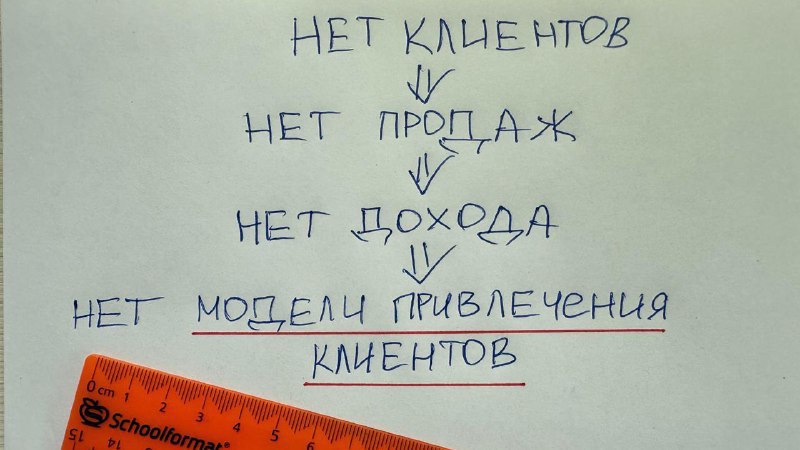 НЕТ КЛИЕНТОВ
НЕТ ПРОДАЖ
НЕТ ДОХОДА
НЕТ МОДЕЛИ ПРИВЛЕЧЕНИЯ
КЛИЕНТОВ
0 cm 1 2 3 4 5 6
Schoolformat®
15 14